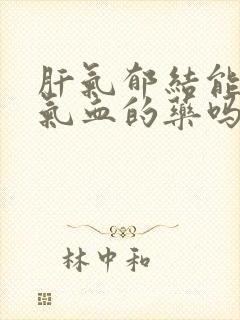 肝氣郁結能
氣血的藥嗎
林中和